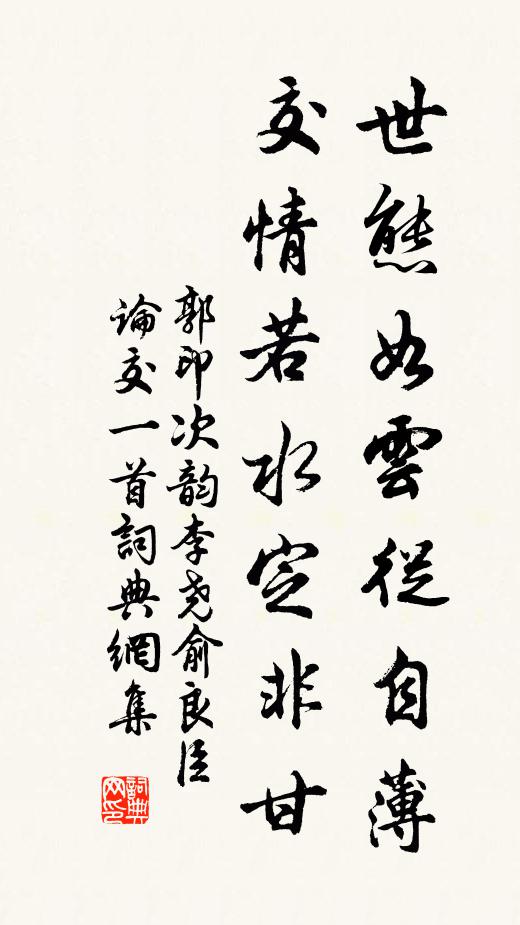 世態如雲從自薄
交情若水定非甘
郭印次韵李尧俞良臣
論交一首詞典網集
詞典
网印